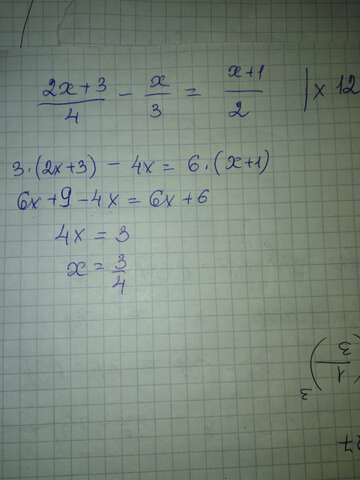 (2x+3)/4 - x/3 = (x+1)/2 | × 12
3·(2x+3) - 4x = 6·(x+1)
6x+9-4x = 6x+6
4x = 3
x = 3/4
(1/3)³
27